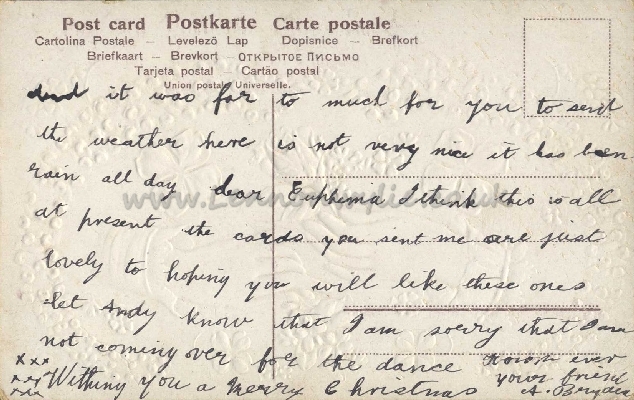 Post card Postkarte Carte postale
Cartolina Postale – Levelező Lap Dopisnice – Brefkort
Briefkaart – Brevkort – ОТКРЫТОЕ ПИСЬМО
Tarjeta postal – Cartão postal
Union postale Universelle.
and it was far to much for you to send
the weather here is not very nice it has been
rain all day dear Euphema I think this is all
at present the cards you sent me are just
lovely to hoping you will like these ones
let Andy know that I am sorry that I am
not coming over for the dance
xxx
xxx Withing you a Merry Christmas
xxx
ever
your friend
A.